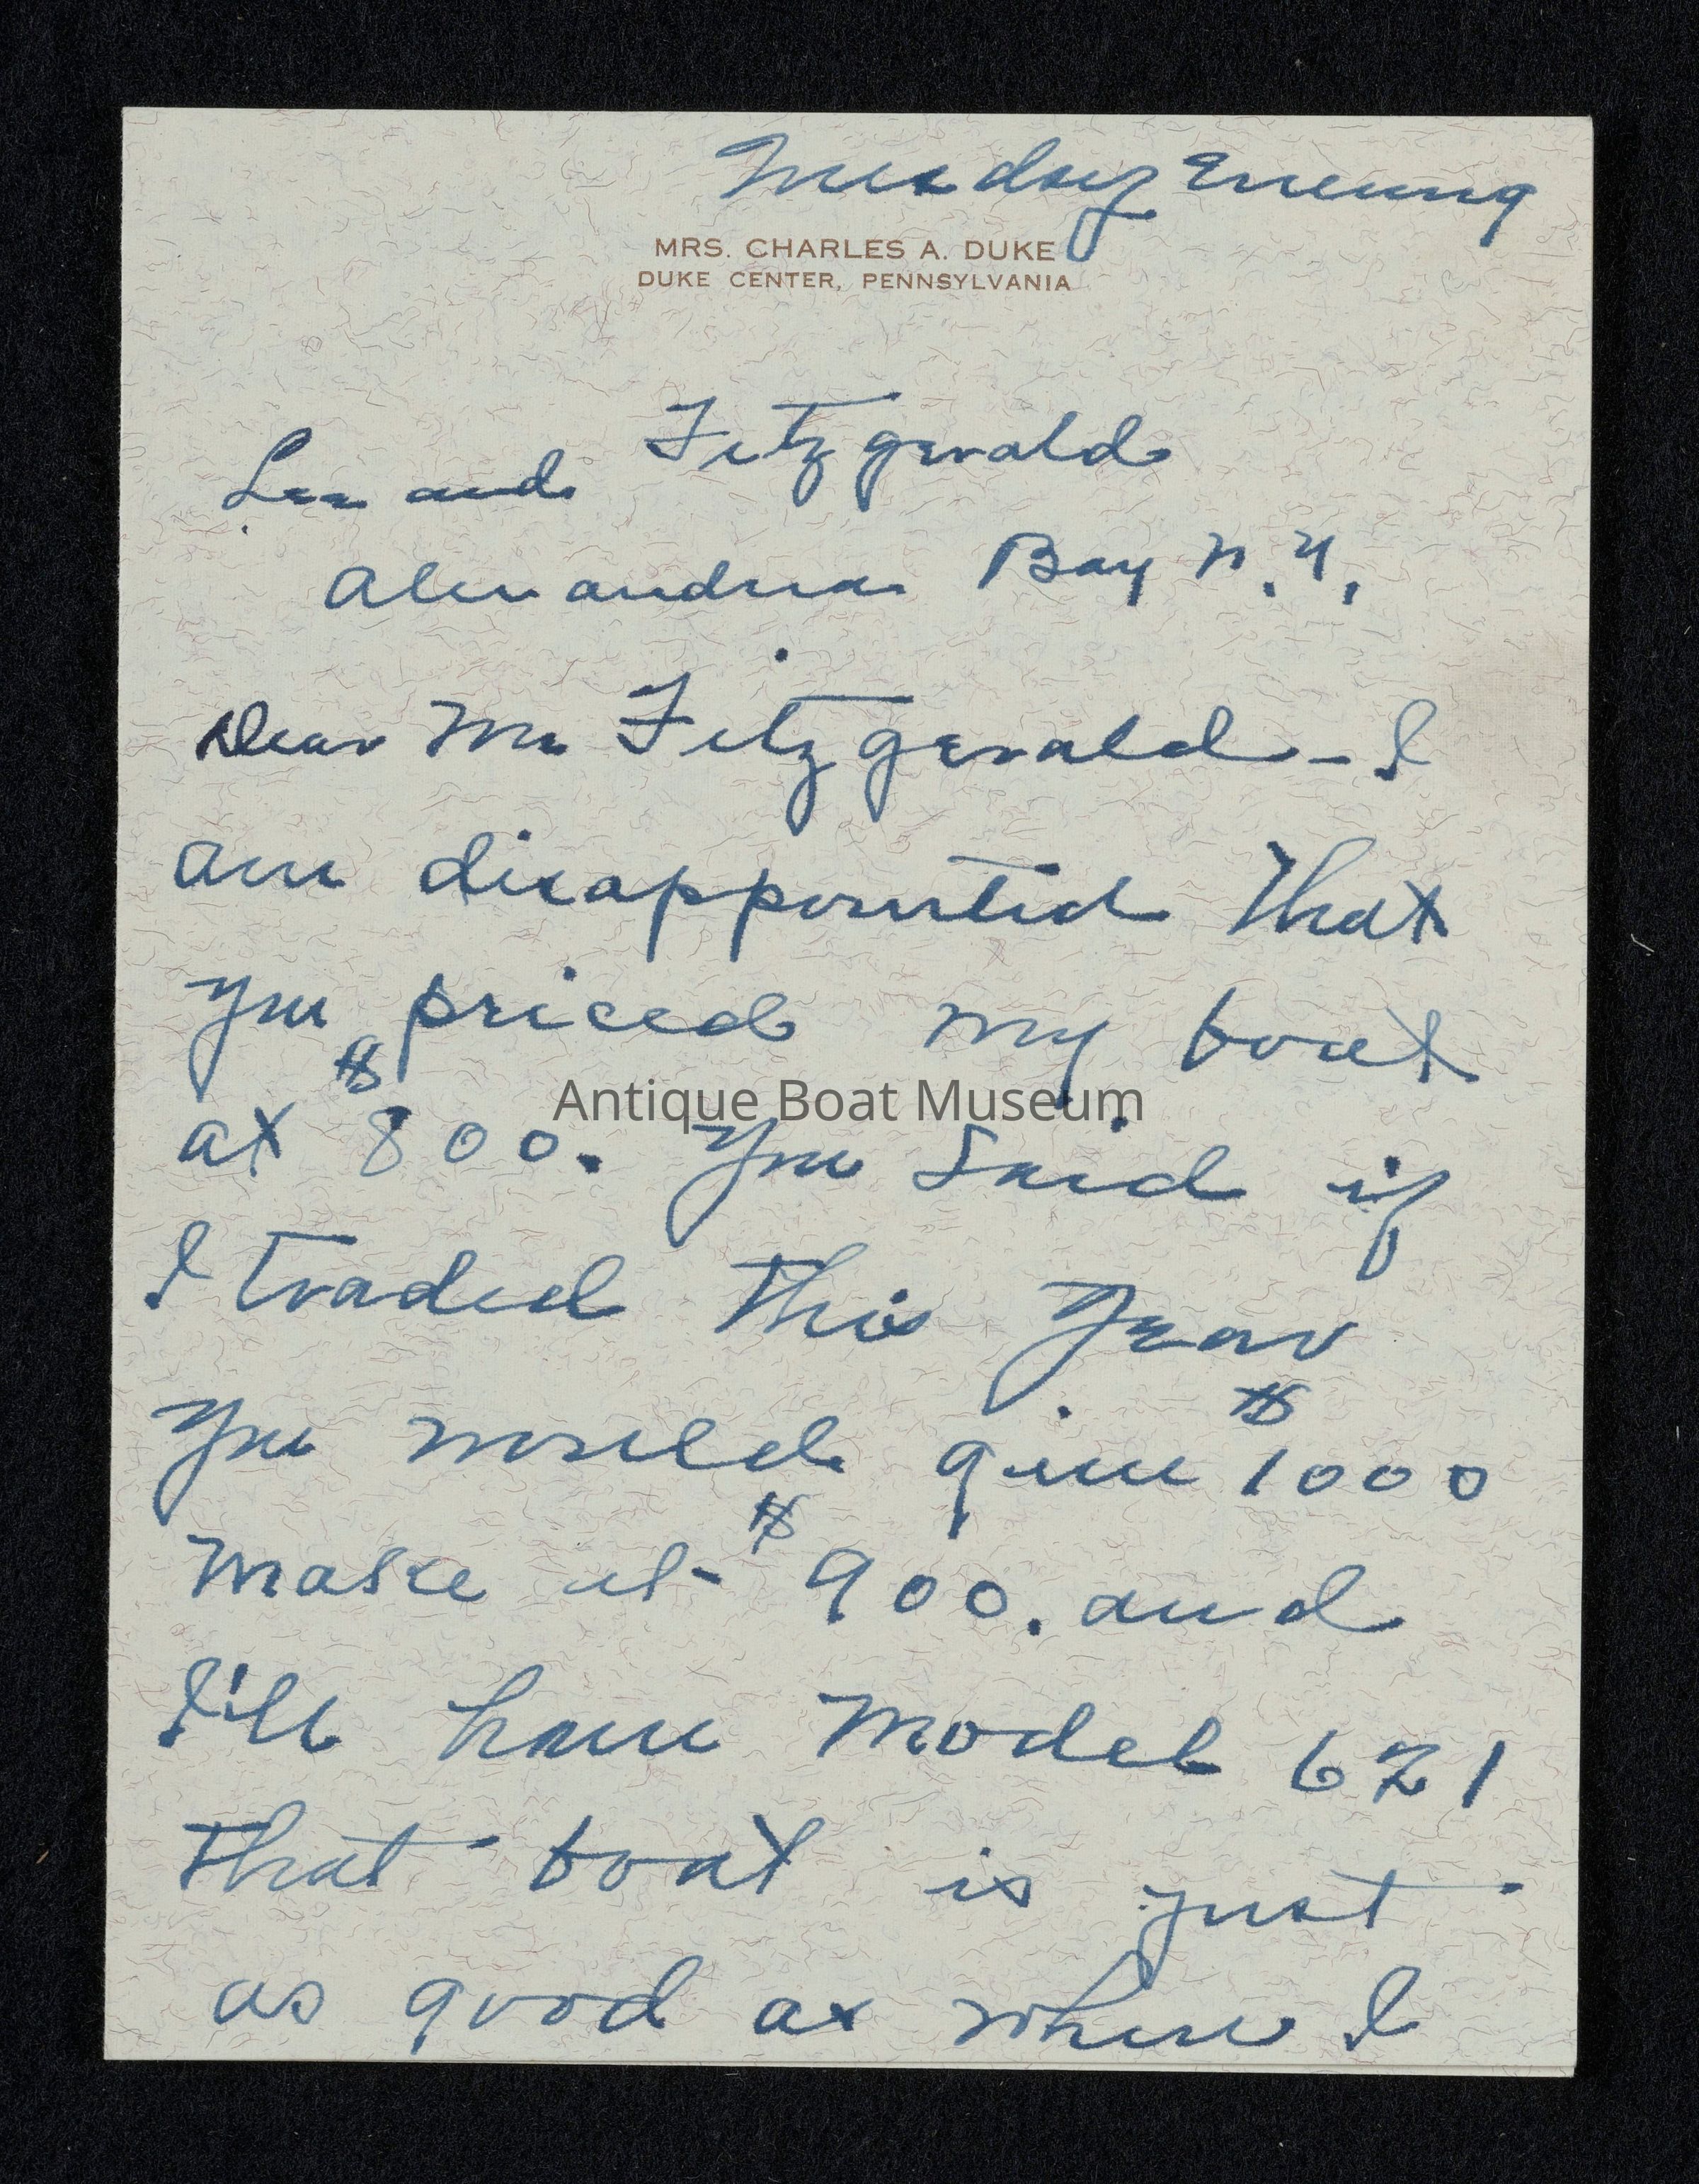 Evening
MRS. CHARLES A. DUKE
DUKE CENTER, PENNSYLVANIA
Lee and Fitzgerald
Alexandria Bay N.Y.
Dear Mr Fitzgerald - I
am disappointed that
you priced my boat
at $800. You said if
Antique Boat Museum
I traded this year
you would give $1000
make it $900. and
I'll have Model 621
that boat is just
as good as when I